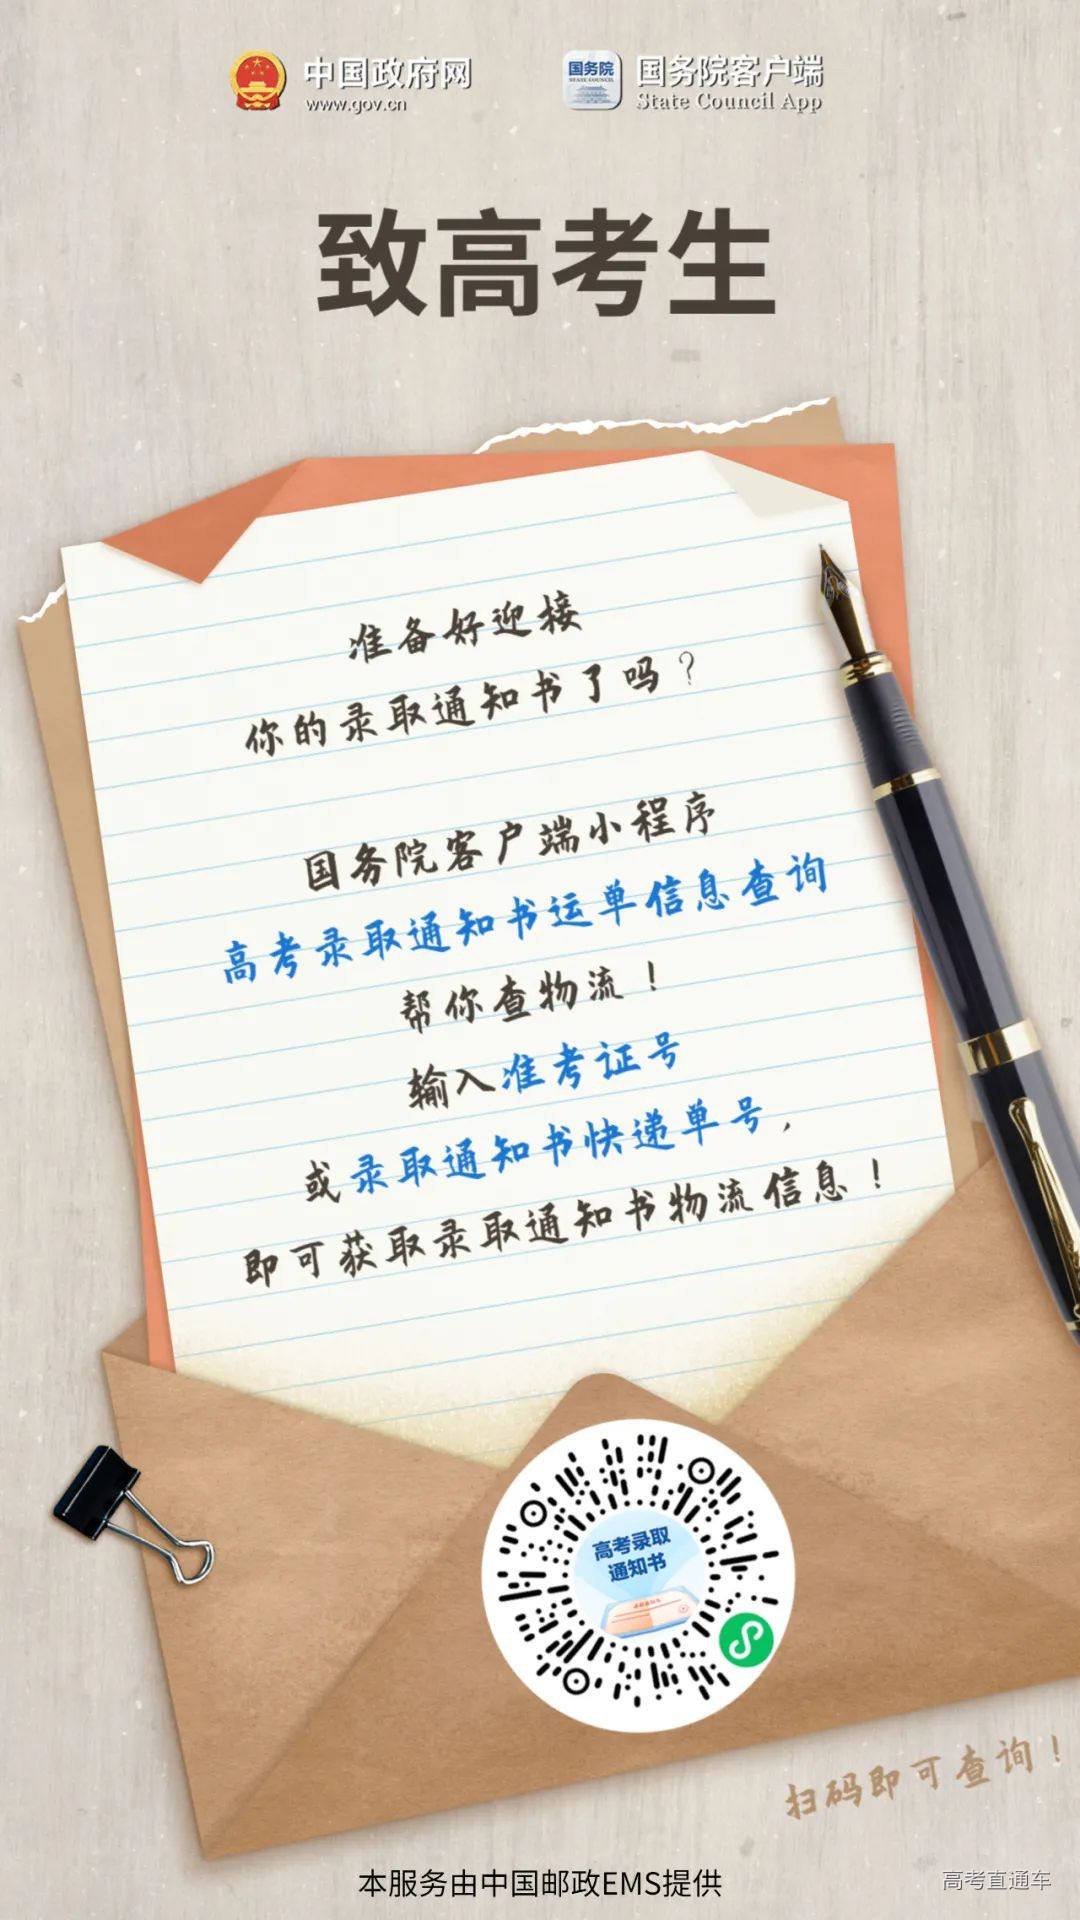 中国政府网
www.gov.cn
国务院
STATE COUNCIL
国务院客户端
State Council App
致高考生
准备好迎接
你的录取通知书了吗？
国务院客户端小程序
高考录取通知书运单信息查询
帮你查物流！
输入准考证号
或录取通知书快递单号，
即可获取录取通知书物流信息！
高考录取
通知书
扫码即可查询！
本服务由中国邮政EMS提供
高考直通车